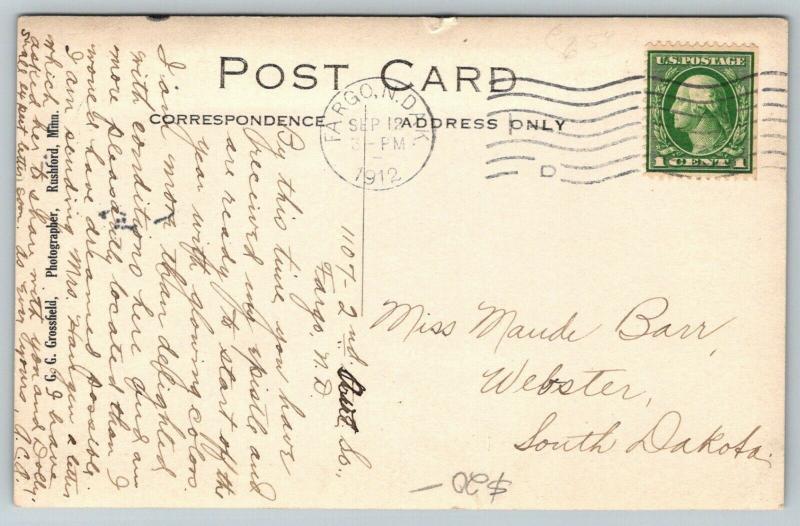 POST CARD
CORRESPONDENCE
ADDRESS ONLY
FARGO, N.D.
SEP 12
3-PM
1912
D
U.S. POSTAGE
1 CENT 1
1107-2nd. Ave So.,
Fargo, N.D.
By this time you have
received my epistle and
are ready to start off the
year with glowing colors.
I am more than delighted
with conditions here and am
more pleasantly located than I
would have dreamed possible.
I am sending Mrs. a letter
which I have
asked her to share with you and Dolly.
as ever yours,
G. G. Grossfield, Photographer, Rushford, Minn.
Miss Maude Barr,
Webster,
South Dakota.
$20-